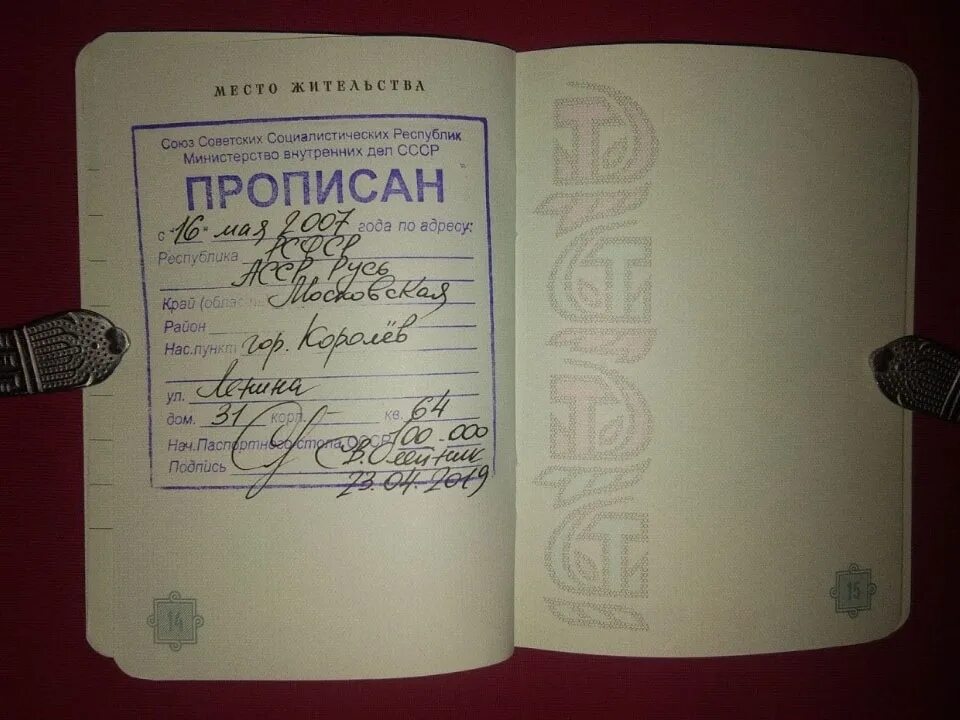 МЕСТО ЖИТЕЛЬСТВА
Союз Советских Социалистических Республик
Министерство внутренних дел СССР
ПРОПИСАН
с "16" мая 2007 года по адресу:
Республика РСФСР
АССР Русь
Край (область Московская
Район
Нас.пункт гор. Королёв
ул. Ленина
дом. 31 корп. кв. 64
Нач.Паспортного стола СССР 100-000
Подпись В.Олейник
23.04.2019
14
15